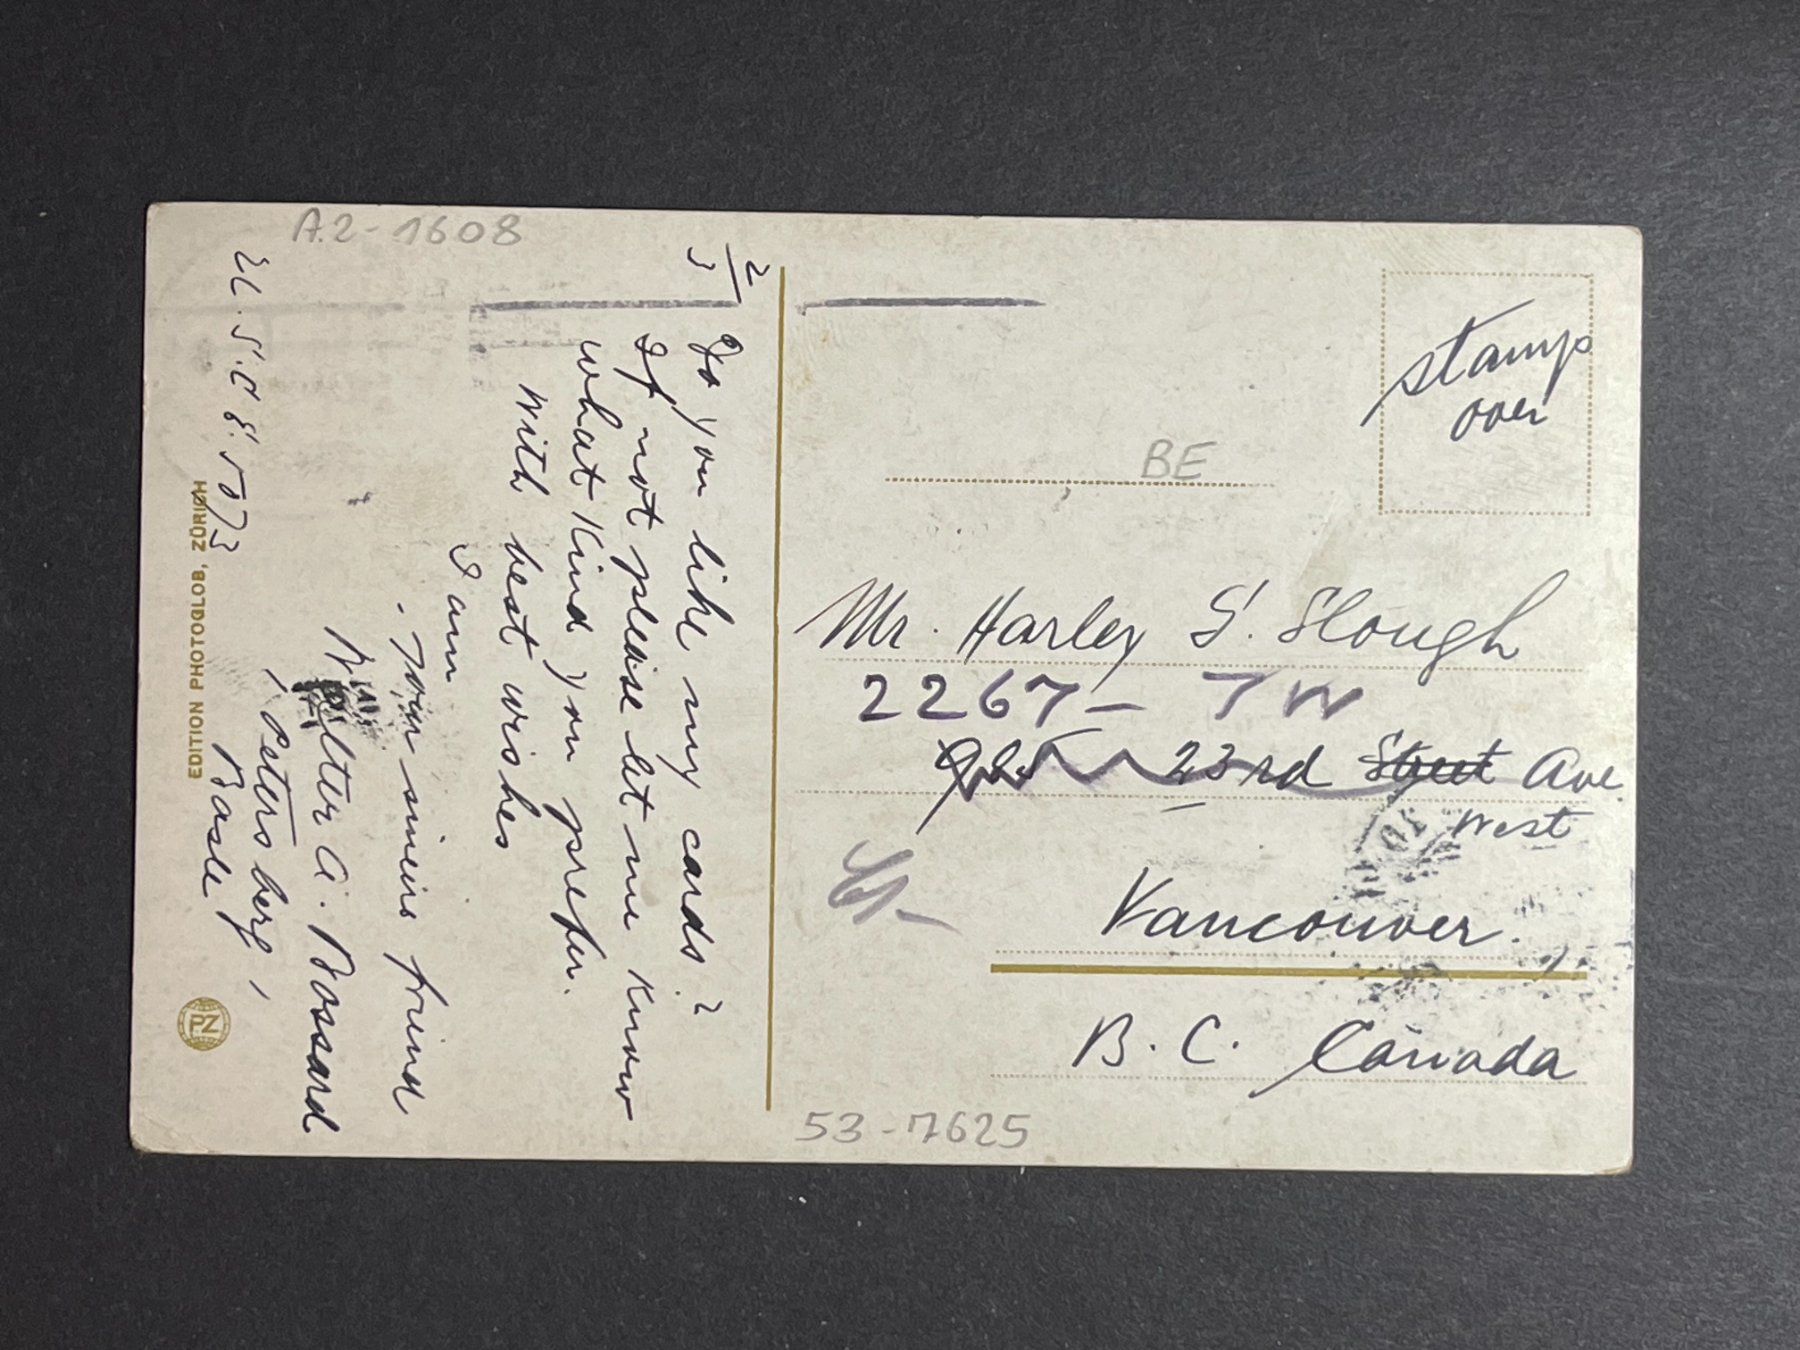 A.2-1608
2/3
Do you like my cards?
If not please let me know
what kind you prefer.
With best wishes
I am
Your sincere friend
Walter A. Bossard
Petersberg,
Basle
EDITION PHOTOGLOB, ZÜRICH
PZ
stamp
over
BE
Mr. Harley S. Slough
2267 - 7 W
23rd Street Ave.
West
Vancouver.
B. C. Canada
53-7625